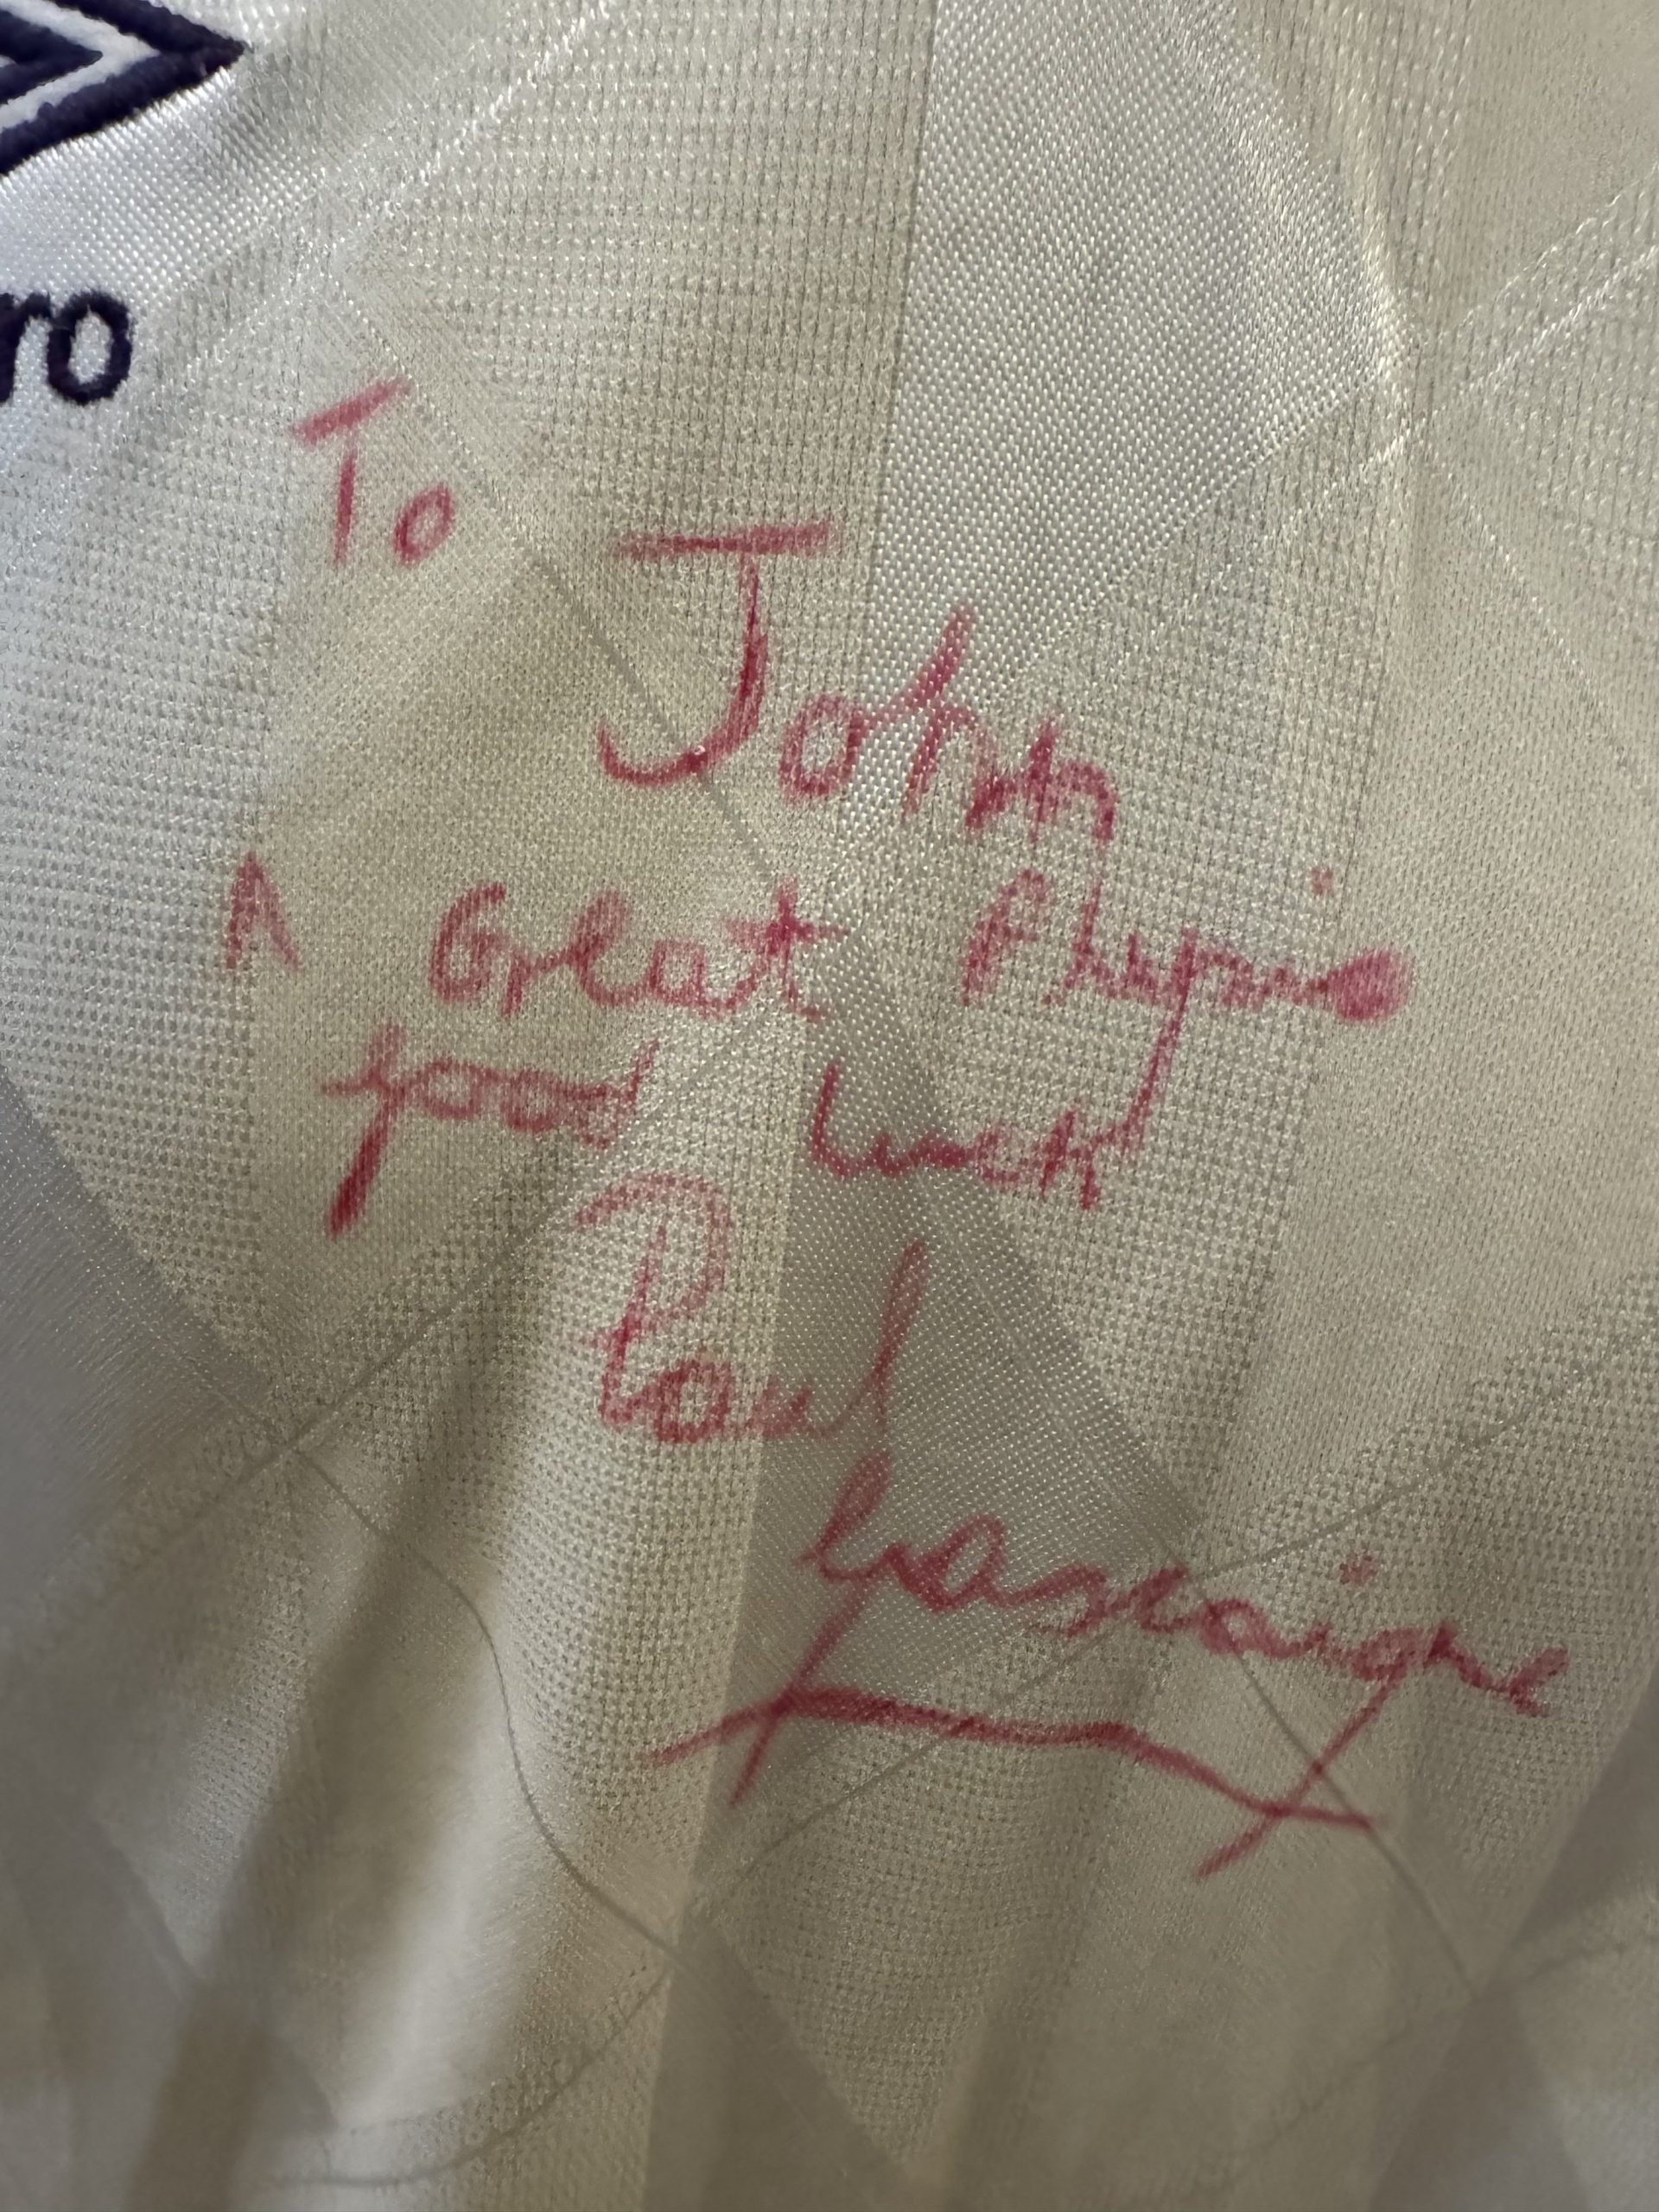 ro
To
John
A Great Physio
good luck
Paul
Gascoigne